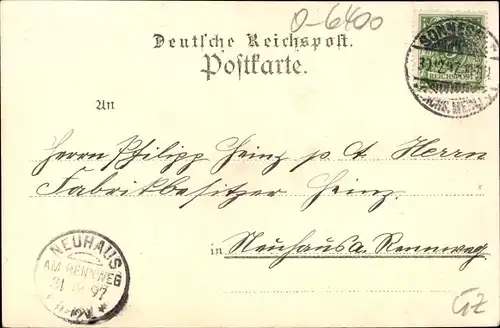 O-6400
Deutsche Reichspost.
Postkarte.
SONNEBERG
REICHSPOST
An
Herrn Philipp Heinz p. A. Herrn
Fabrikbesitzer Heinz.
in Neuhaus a. Rennweg
NEUHAUS
AM RENNWEG
31 12 97
GZ